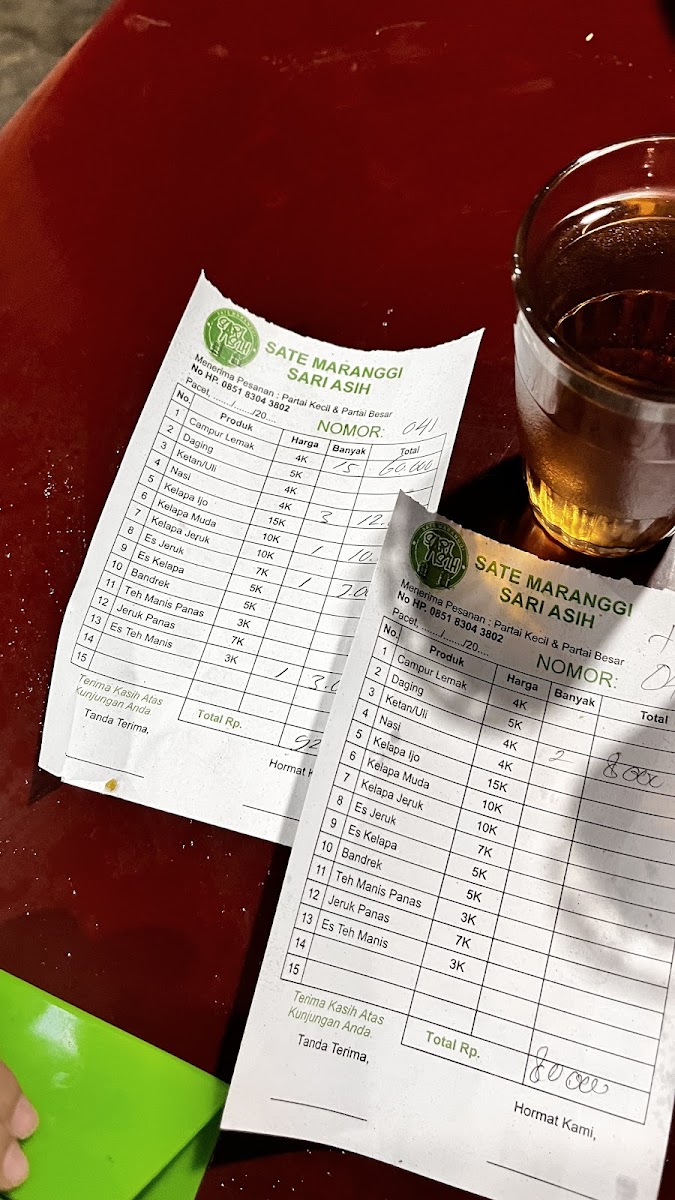 SATE MARANGGI
SARI ASIH
Menerima Pesanan : Partai Kecil & Partai Besar
No HP. 0851 8304 3802
Pacet, ....../....../20....
NOMOR: 041
No. Produk Harga Banyak Total
1 Campur Lemak 4K 15 60.000
2 Daging 5K
3 Ketan/Uli 4K
4 Nasi 4K 3 12.
5 Kelapa Ijo 15K
6 Kelapa Muda 10K 1 10.
7 Kelapa Jeruk 10K
8 Es Jeruk 7K 1 7.0
9 Es Kelapa 5K
10 Bandrek 5K
11 Teh Manis Panas 3K
12 Jeruk Panas 7K
13 Es Teh Manis 3K 1 3.0
14
15
Terima Kasih Atas
Kunjungan Anda.
Total Rp. 92
Tanda Terima,
Hormat
SATE MARANGGI
SARI ASIH
Menerima Pesanan : Partai Kecil & Partai Besar
No HP. 0851 8304 3802
Pacet, ....../....../20....
NOMOR: 0
No. Produk Harga Banyak Total
1 Campur Lemak 4K
2 Daging 5K
3 Ketan/Uli 4K 2 8000
4 Nasi 4K
5 Kelapa Ijo 15K
6 Kelapa Muda 10K
7 Kelapa Jeruk 10K
8 Es Jeruk 7K
9 Es Kelapa 5K
10 Bandrek 5K
11 Teh Manis Panas 3K
12 Jeruk Panas 7K
13 Es Teh Manis 3K
14
15
Terima Kasih Atas
Kunjungan Anda.
Total Rp.
Tanda Terima,
Hormat Kami,